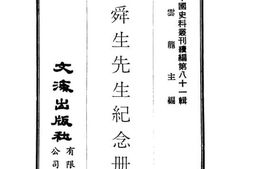 國史料叢刊續編第八十一輯
雲龍主編
舜生先生紀念册
文海出版社
有限
公司